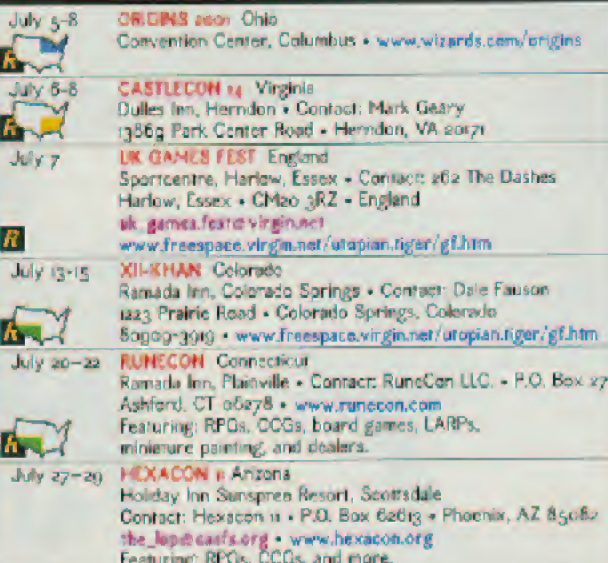 July 5-8 ORIGINS 2001 Ohio
Convention Center, Columbus • www.wizards.com/origins
R
July 6-8 CASTLECON 14 Virginia
Dulles Inn, Herndon • Contact: Mark Geary
13869 Park Center Road • Herndon, VA 20171
R
July 7 UK GAMES FEST England
Sportcentre, Harlow, Essex • Contact: 262 The Dashes
Harlow, Essex • CM20 3RZ • England
uk_games.fest@virgin.net
R www.freespace.virgin.net/utopian.tiger/gf.htm
July 13-15 XII-KHAN Colorado
Ramada Inn, Colorado Springs • Contact: Dale Fauson
1223 Prairie Road • Colorado Springs, Colorado
R 80909-3919 • www.freespace.virgin.net/utopian.tiger/gf.htm
July 20-22 RUNECON Connecticut
Ramada Inn, Plainville • Contact: RuneCon LLC. • P.O. Box 27
Ashford, CT 06278 • www.runecon.com
Featuring: RPGs, CCGs, board games, LARPs,
R miniature painting, and dealers.
July 27-29 HEXACON 11 Arizona
Holiday Inn Sunspree Resort, Scottsdale
Contact: Hexacon 11 • P.O. Box 62613 • Phoenix, AZ 85082
• www.hexacon.org
Featuring: RPGs, CCGs, and more.